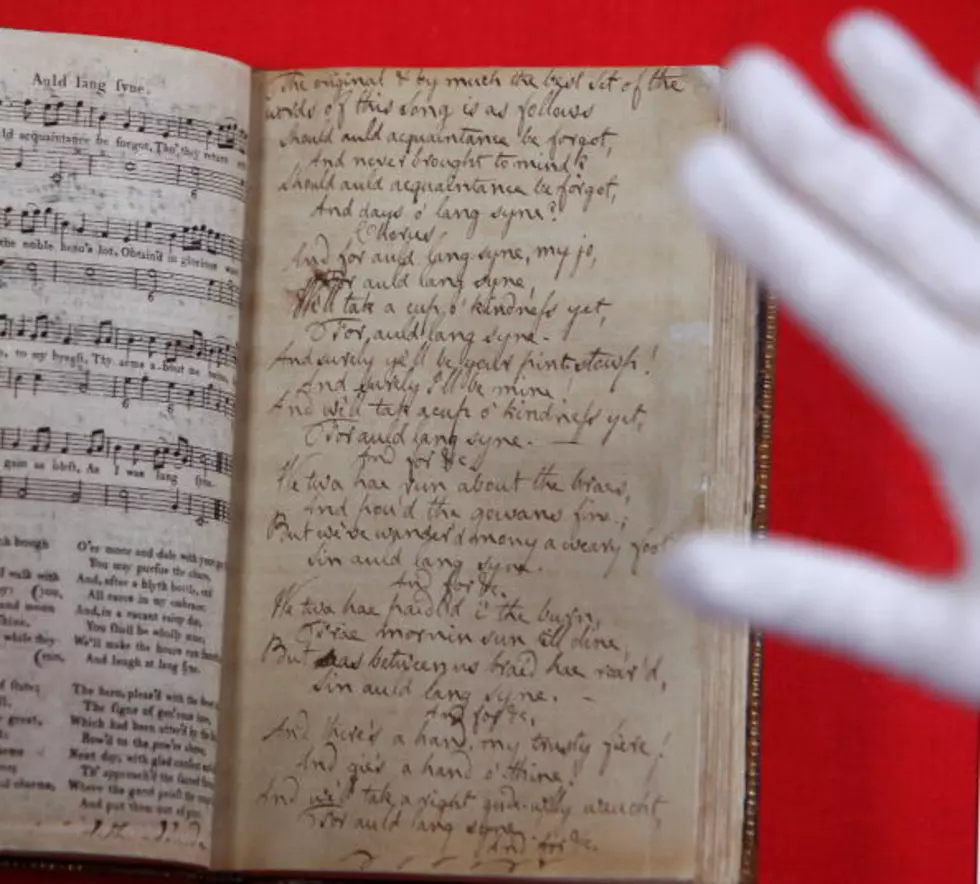 Auld lang ſyne.
ld acquaintance be forgot, Tho' they return
the noble hero's lot, Obtain'd in glorious
to my breaſt, Thy arms a-bout me
gain as bleſt, As I was lang ſyne.
O'er moor and dale with your
You may purſue the chace,
And, after a blyth bottle, end
All cares in my embrace:
And, in a vacant rainy day,
You ſhall be wholly mine;
We'll make the hours run
And laugh at lang ſyne.
The hero, pleas'd with the
The ſigns of gen'rous love,
Which had been utter'd by the
Bow'd to the pow'rs above;
Next day, with glad conſent
Th' approach'd the ſacred
Where the good prieſt the
And put them out of pine.
The original & by much the best set of the
words of this song is as follows
Should auld acquaintance be forgot,
And never brought to mind?
Should auld acquaintance be forgot,
And days o' lang syne?
Chorus
And for auld lang syne, my jo,
For auld lang syne,
We'll tak a cup o' kindneſs yet,
For auld lang syne. -
And surely ye'll be your pint-stowp!
And surely I'll be mine!
And we'll tak a cup o' kindneſs yet,
For auld lang syne. -
And for &c.
We twa hae run about the braes,
And pou'd the gowans fine;
But we've wander'd mony a weary foot
Sin auld lang syne.
And for &c.
We twa hae paidl'd i' the burn,
Frae mornin sun till dine,
But seas between us braid hae roar'd,
Sin auld lang syne. -
And for &c.
And there's a hand, my trusty fiere!
And gie's a hand o' thine!
And we'll tak a right gude-willy waught,
For auld lang syne
And for &c.